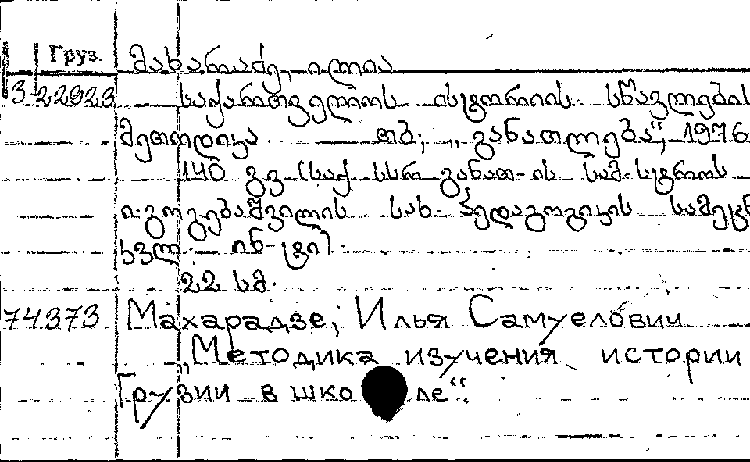 Груз.
მახარაძე, ილია
3 22923 საქართველოს ისტორიის სწავლების
მეთოდიკა თბ., „განათლება“, 1976
140 გვ (საქ. სსრ განათ-ის სამ-სტროს
ი. გოგებაშვილის სახ. პედაგოგიკის სამეცნ
ინ-ტი)
22 სმ.
74373 Махарадзе, Илья Самуелович
„Методика изучения истории
Грузии в школе“.